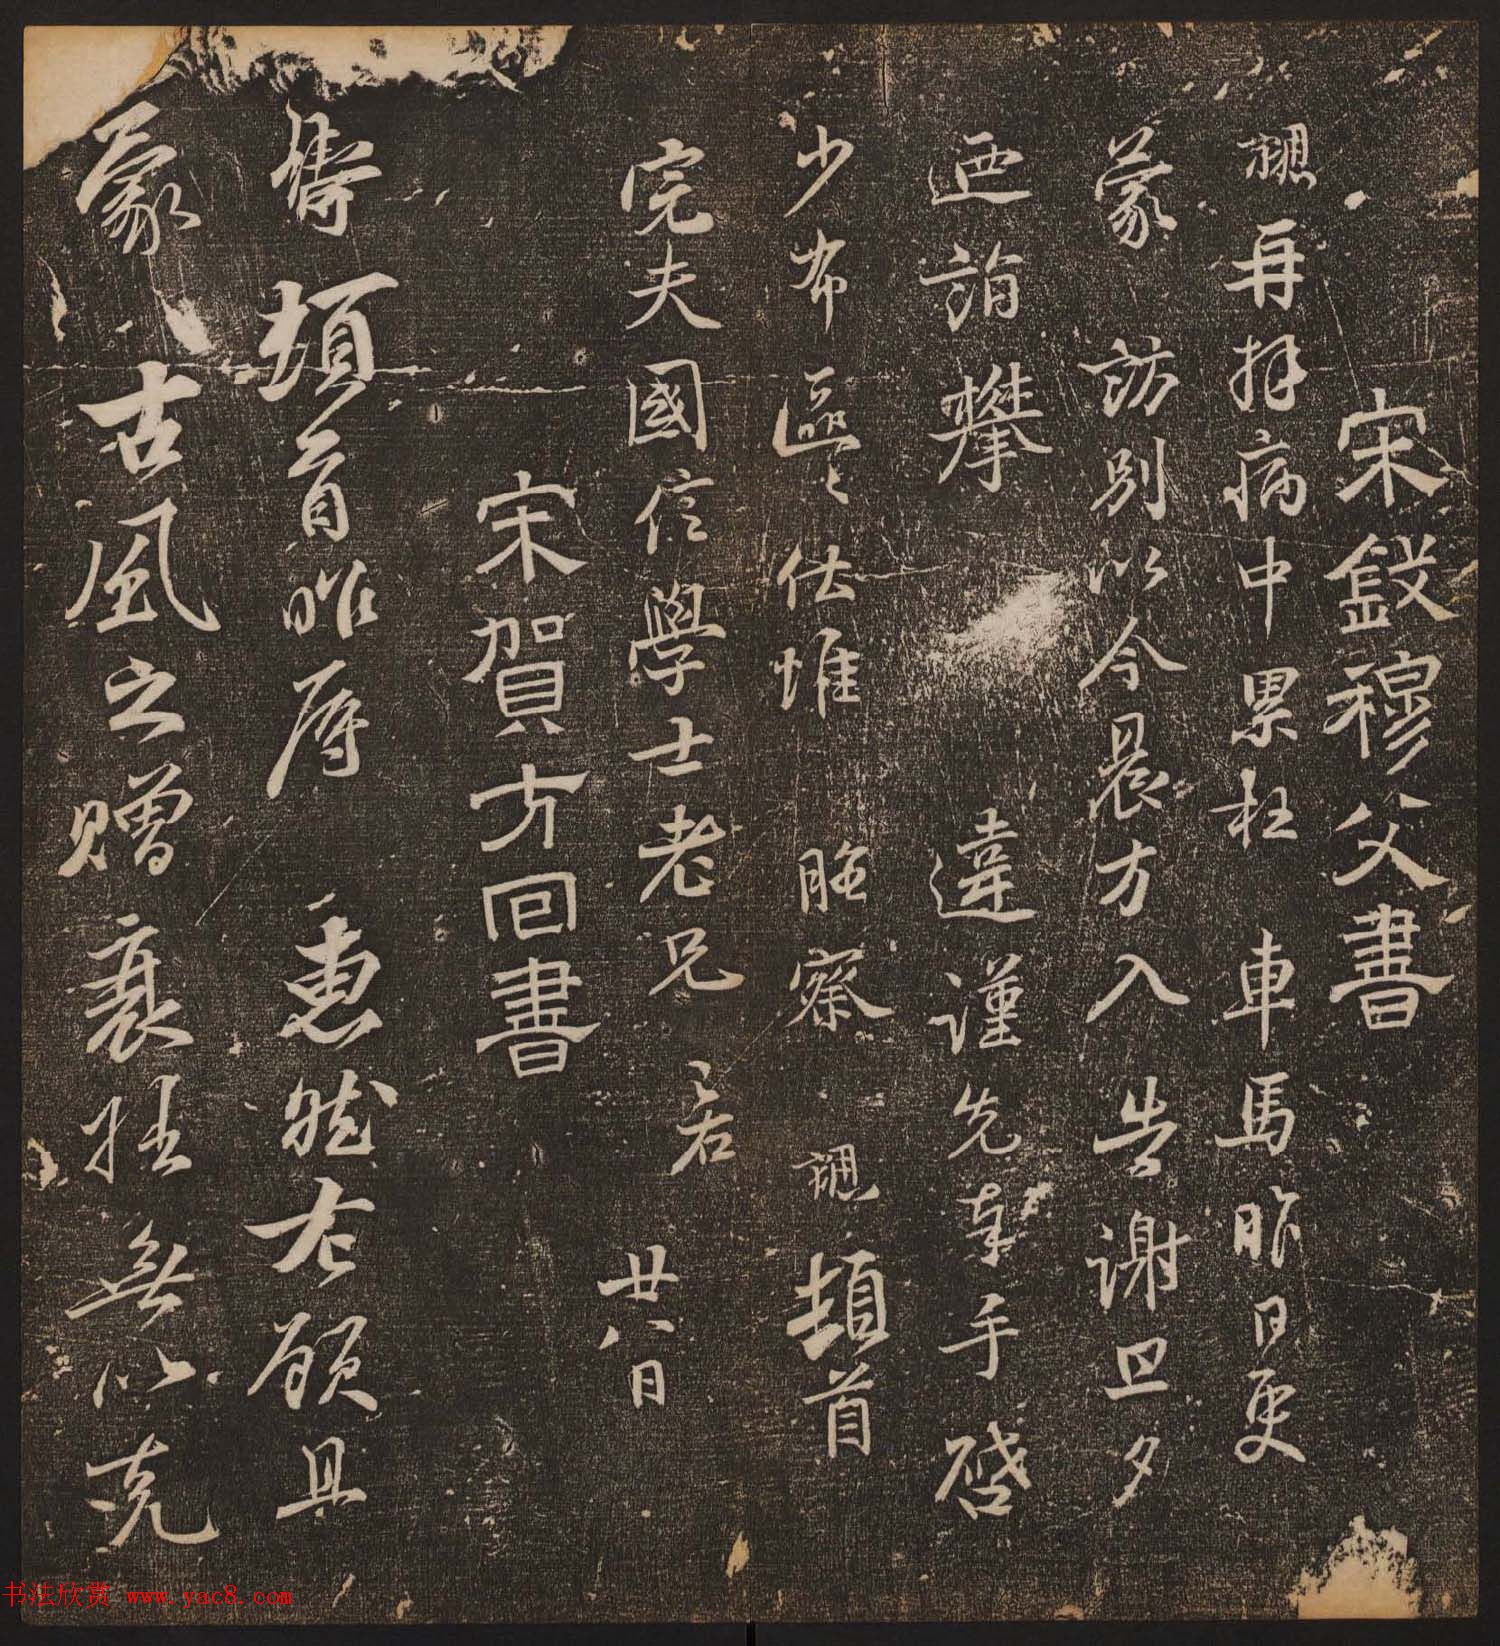 宋錢穆父書
勰再拜病中累枉車馬昨日更
蒙訪別以今晨方入告謝旦夕
迺詣攀違謹先奉手啓
少布區區伏惟照察勰頓首
完夫國信學士老兄
廿八日
宋賀方回書
鑄頓首昨辱惠然右顧且
蒙古風之贈衰拙無以克
书法欣赏 www.yac8.com